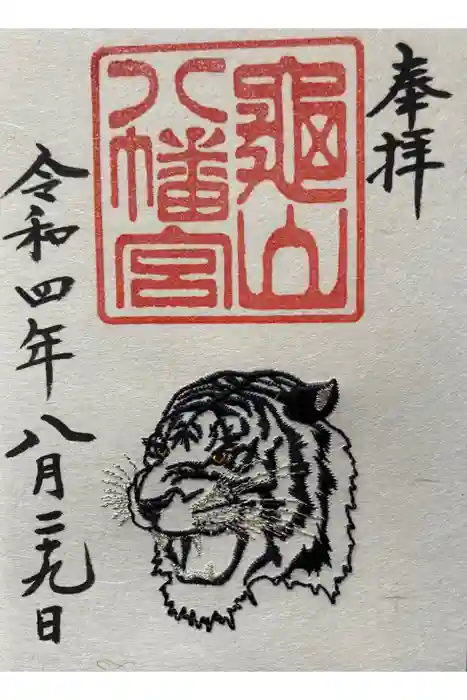 奉拝
龜山
八幡宮
令和四年八月二十九日